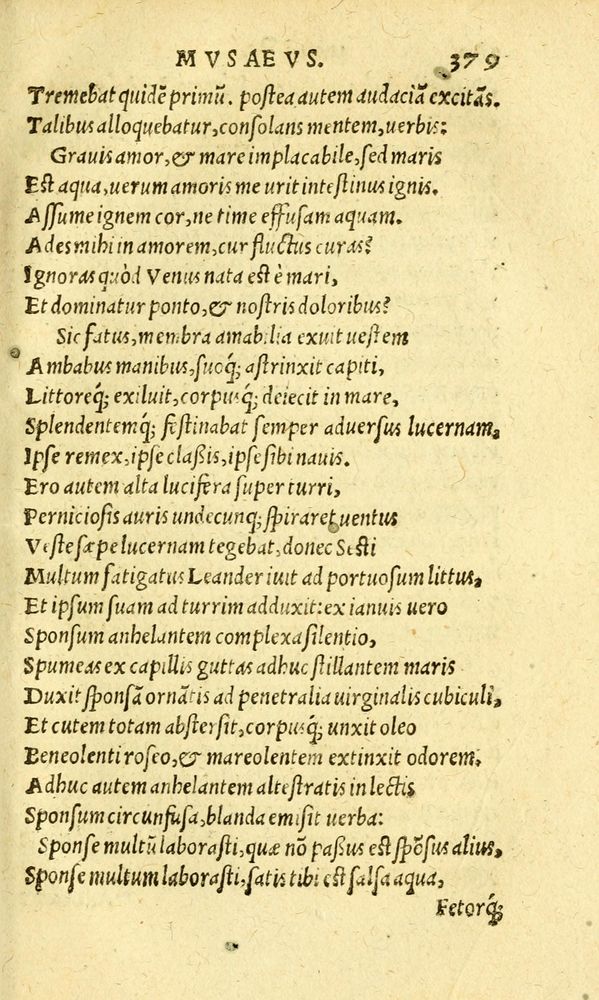 MVSAEVS. 379
Tremebat quidē primū. postea autem audaciā excitās.
Talibus alloquebatur, consolans mentem, uerbis:
Grauis amor, & mare implacabile, sed maris
Est aqua, uerum amoris me urit intestinus ignis.
Assume ignem cor, ne time effusam aquam.
Ades mihi in amorem, cur fluctus curas?
Ignoras quòd Venus nata est è mari,
Et dominatur ponto, & nostris doloribus?
Sic fatus, membra amabilia exuit uestem
Ambabus manibus, suoq; astrinxit capiti,
Littoreq; exiluit, corpusq; deiecit in mare,
Splendentemq; festinabat semper aduersus lucernam,
Ipse remex, ipse claßis, ipse sibi nauis.
Ero autem alta lucifera super turri,
Perniciosis auris undecunq; spiraret uentus
Veste sæpe lucernam tegebat, donec Sesti
Multum fatigatus Leander iuit ad portuosum littus,
Et ipsum suam ad turrim adduxit: ex ianuis uero
Sponsum anhelantem complexa silentio,
Spumeas ex capillis guttas adhuc stillantem maris
Duxit spōnsā ornātis ad penetralia uirginalis cubiculi,
Et cutem totam abstersit, corpusq; unxit oleo
Beneolenti roseo, & mareolentem extinxit odorem,
Adhuc autem anhelantem alte stratis in lectis
Sponsum circunfusa, blanda emisit uerba:
Sponse multū laborasti, quæ nō paßus est spōsus alius,
Sponse multum laborasti, satis tibi est salsa aqua,
Fetorq;